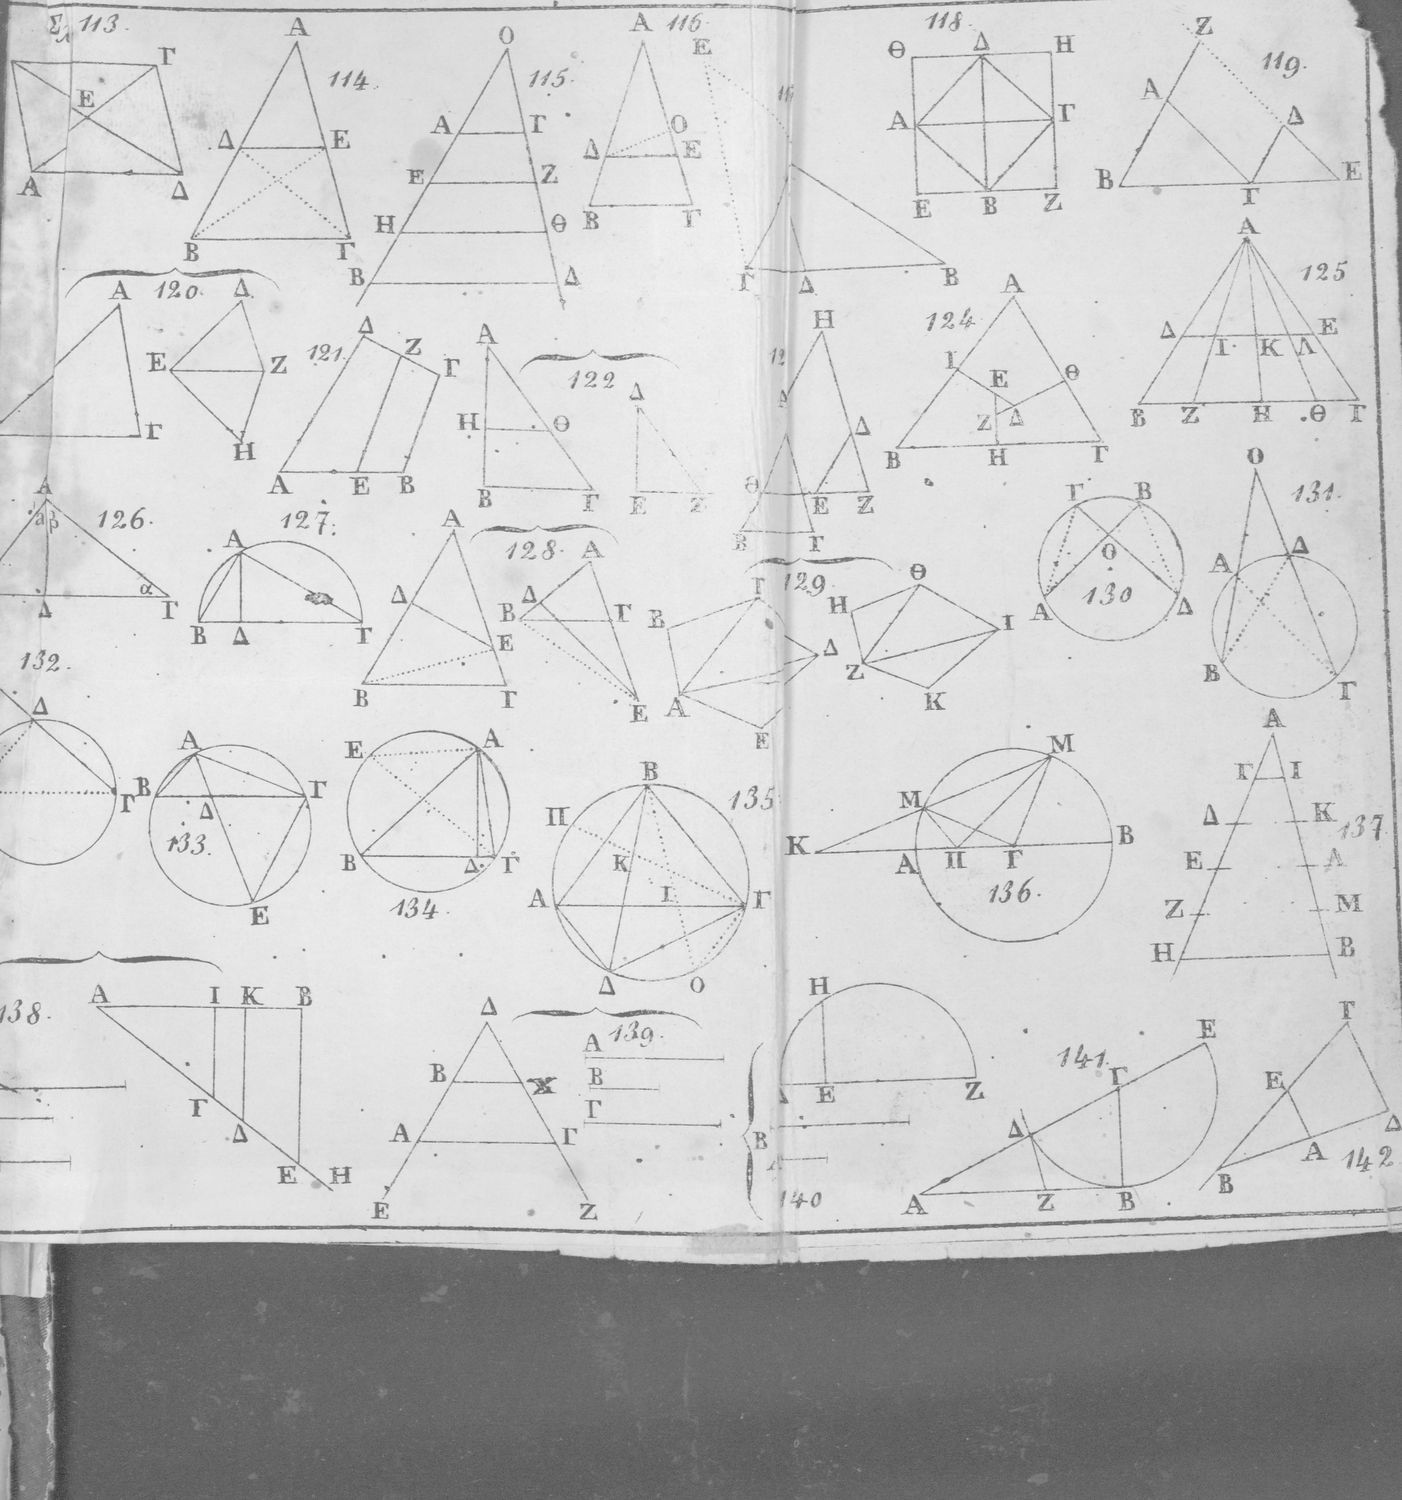 Σχ 113.
Γ
Ε
Α
Δ
Α
114
Δ
Ε
Β
Γ
Ο
115
Α
Γ
Ε
Ζ
Η
Θ
Β
Δ
Α
116
Ο
Δ
Ε
Β
Γ
Ε
Γ
Δ
Β
118
Θ
Δ
Η
Α
Γ
Ε
Β
Ζ
Ζ
119
Α
Δ
Β
Γ
Ε
120
Α
Γ
Δ
Ε
Ζ
Η
121
Δ
Ζ
Γ
Α
Ε
Β
122
Α
Η
Θ
Β
Γ
Δ
Ε
Ζ
12
Η
Α
Δ
Θ
Ε
Ζ
Β
Γ
124
Α
Ι
Ε
Θ
Ζ
Δ
Β
Η
Γ
Α
125
Δ
Ε
Ι
Κ
Λ
Β
Ζ
Η
Θ
Γ
Α
α
β
126.
α
Δ
Γ
127.
Α
Β
Δ
Γ
128.
Α
Δ
Ε
Β
Γ
Α
Δ
Β
Γ
Ε
129
Γ
Β
Δ
Α
Ε
Θ
Η
Ι
Ζ
Κ
Γ
Β
Ο
130
Α
Δ
Ο
131.
Α
Δ
Β
Γ
132
Δ
Γ
Α
Β
Γ
Δ
133.
Ε
Ε
Α
Β
Δ
Γ
134
Β
135
Π
Κ
Ι
Α
Γ
Δ
Ο
Μ
Μ
Κ
Α
Π
Γ
Β
136.
Α
Γ
Ι
Δ
Κ
137
Ε
Λ
Ζ
Μ
Η
Β
138.
Α
Ι
Κ
Β
Γ
Δ
Ε
Η
139.
Δ
Β
Α
Γ
Ε
Ζ
Α
Β
Γ
Η
Δ
Ε
Ζ
Β
140
141.
Ε
Γ
Δ
Α
Ζ
Β
Γ
Ε
Δ
Α
Β
142.